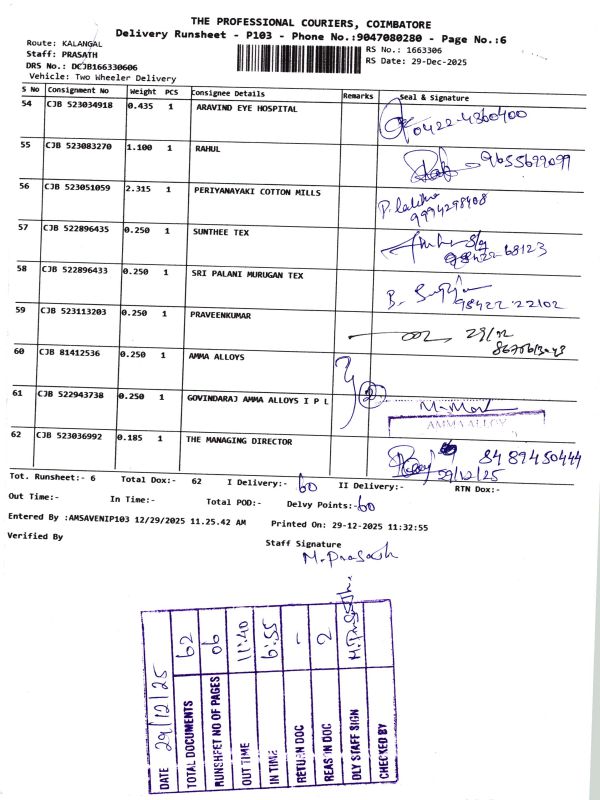 THE PROFESSIONAL COURIERS, COIMBATORE
Delivery Runsheet - P103 - Phone No.:9047080280 - Page No.:6
Route: KALANGAL
Staff: PRASATH
DRS No.: DCJB166330606
Vehicle: Two Wheeler Delivery
RS No.: 1663306
RS Date: 29-Dec-2025
S No Consignment No Weight PCS Consignee Details Remarks Seal & Signature
54 CJB 523034918 0.435 1 ARAVIND EYE HOSPITAL 0422-4360400
55 CJB 523083270 1.100 1 RAHUL 9655699099
56 CJB 523051059 2.315 1 PERIYANAYAKI COTTON MILLS
9994298408
57 CJB 522896435 0.250 1 SUNTHEE TEX
58 CJB 522896433 0.250 1 SRI PALANI MURUGAN TEX 98422 22102
59 CJB 523113203 0.250 1 PRAVEENKUMAR
60 CJB 81412536 0.250 1 AMMA ALLOYS
61 CJB 522943738 0.250 1 GOVINDARAJ AMMA ALLOYS I P L 2
AMMA ALLOY
62 CJB 523036992 0.185 1 THE MANAGING DIRECTOR 8489450444
29/12/25
Tot. Runsheet:- 6 Total Dox:- 62 I Delivery:- 60 II Delivery:- RTN Dox:-
Out Time:- In Time:- Total POD:- Delvy Points:- 60
Entered By :AMSAVENIP103 12/29/2025 11.25.42 AM Printed On: 29-12-2025 11:32:55
Verified By Staff Signature
M. Prasath
DATE 29/12/25
TOTAL DOCUMENTS 62
RUNSHEET NO OF PAGES 06
OUT TIME 11:40
IN TIME 6:55
RETURN DOC -
REASIN DOC 2
DLY STAFF SIGN M. Prasath.
CHECKED BY